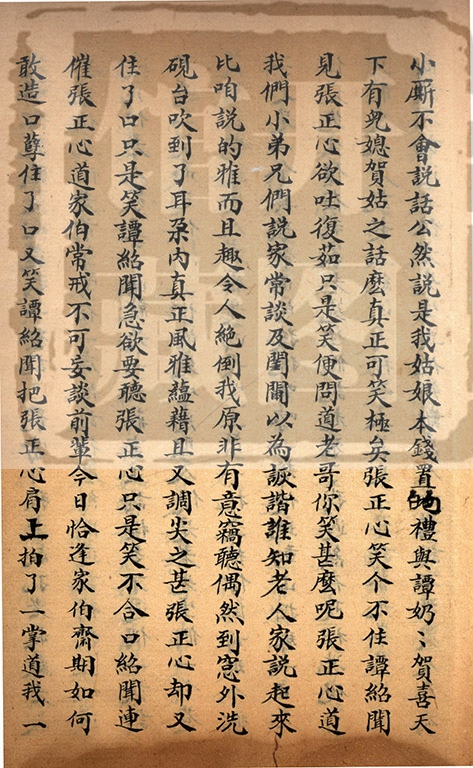 小厮不會説話公然説是我姑娘本錢置的禮與譚奶〻賀喜天
下有兒媳賀姑之話麽真正可笑極矣張正心笑个不住譚紹聞
見張正心欲吐復茹只是笑便問道老哥你笑甚麽呢張正心道
我們小弟兄們説家常談及閨閫以為詼諧誰知老人家説起來
比咱説的雅而且趣令人絶倒我原非有意竊聽偶然到窓外洗
硯台吹到了耳朶内真正風雅蘊藉且又調尖之甚張正心却又
住了口只是笑譚紹聞急欲要聽張正心只是笑不合口紹聞連
催張正心道家伯常戒不可妄談前輩今日恰逢家伯齋期如何
敢造口孽住了口又笑譚紹聞把張正心肩上拍了一掌道我一